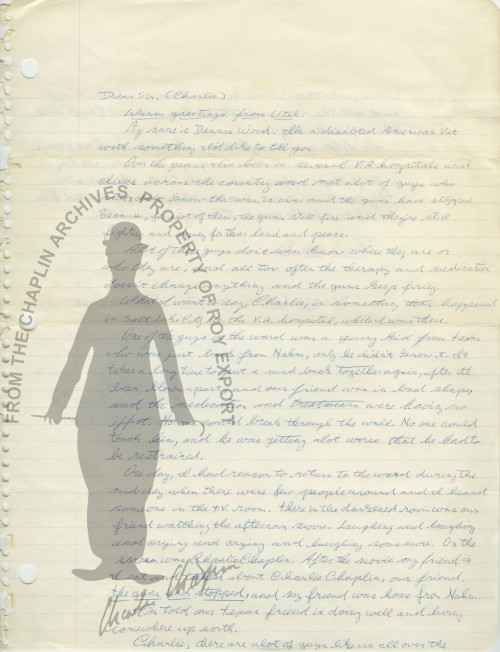 Dear Sir, (Charlie)
Warm greetings from Utah.
My name is Dennis Wood. I'm a disabled American Vet
with something I'd like to tell you.
Over the years I've been in several V.A. hospitals and
clinics across the country and met alot of guys who
know the war is over and the guns have stopped.
Because, for alot of them, the guns still fire and they're still
fighting and for their land and peace.
Alot of these guys don't even know where they are or
who they are, and all too often the therapy and medication
doesn't change anything and the guns keep firing.
What I want to say, Charlie, is something that happened
in Salt Lake City at the V.A. hospital, while I was there.
One of the guys on the ward was a young kid from Texas
who was just back from Nam, only he didn't know it. It
takes a long time to put a mind back together again, after it's
been blown apart, and our friend was in bad shape,
and the medication and treatments were having no
effect. No one could break through the wall. No one could
touch him, and he was getting alot worse that he had to
be restrained.
One day, I had reason to return to the ward during the
mid-day when there were few people around and I heard
someone in the T.V. room. There in the darkened room was our
friend watching the afternoon movie. Laughing and laughing
and crying and crying and laughing some more. On the
screen was Charlie Chaplin. After the movie my friend &
I sat and talked about Charlie Chaplin, our friend.
The guns had stopped, and my friend was home from Nam.
I'm told our Texas friend is doing well and living
somewhere up north.
Charlie, there are alot of guys like us all over the
FROM THE CHAPLIN ARCHIVES, PROPERTY OF ROY EXPORT
Charlie Chaplin